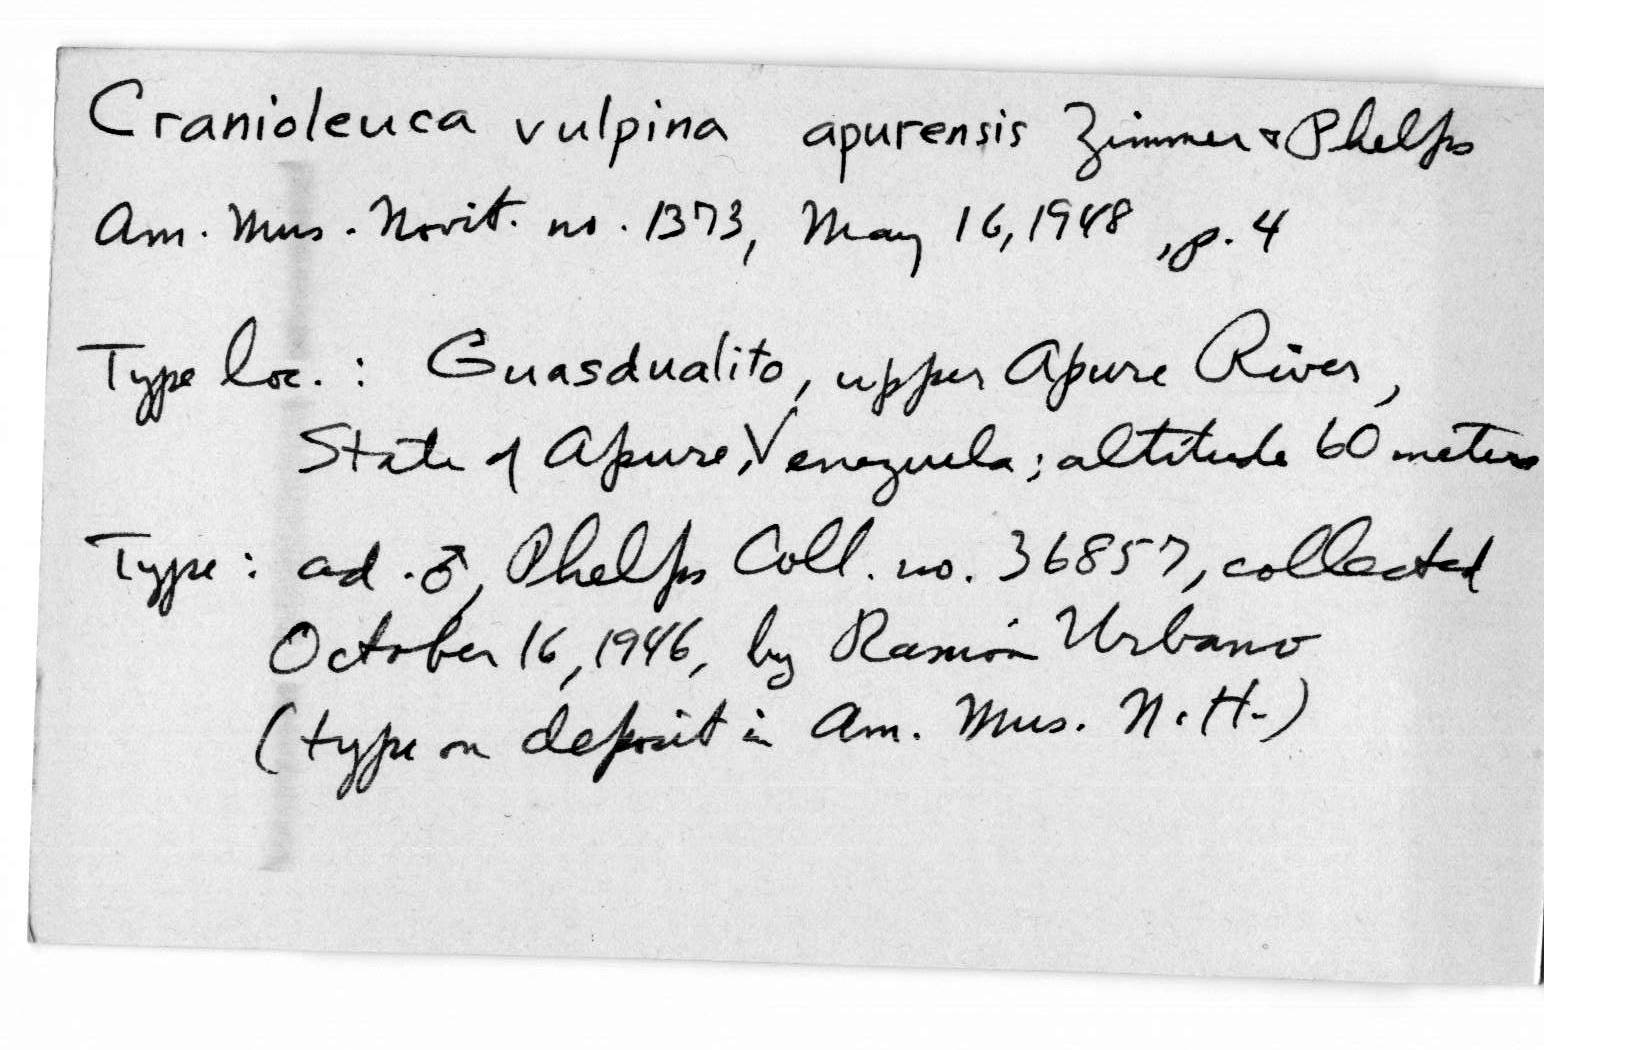 Cranioleuca vulpina apurensis Zimmer & Phelps
Am. Mus. Novit. no. 1373, May 16, 1948, p. 4
Type loc.: Guasdualito, upper Apure River,
State of Apure, Venezuela; altitude 60 meters
Type: ad. ♂, Phelps Coll. no. 36857, collected
October 16, 1946, by Ramón Urbano
(type on deposit in Am. Mus. N. H.)